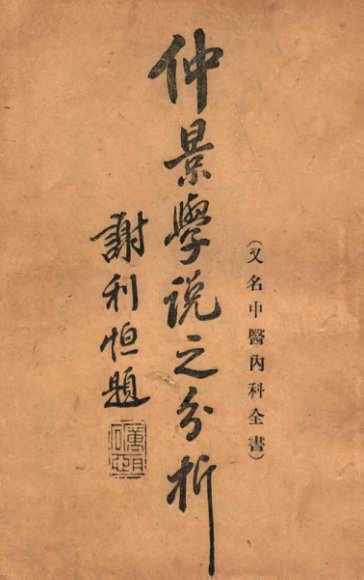 （又名中醫內科全書）
仲景學說之分析
謝利恒題